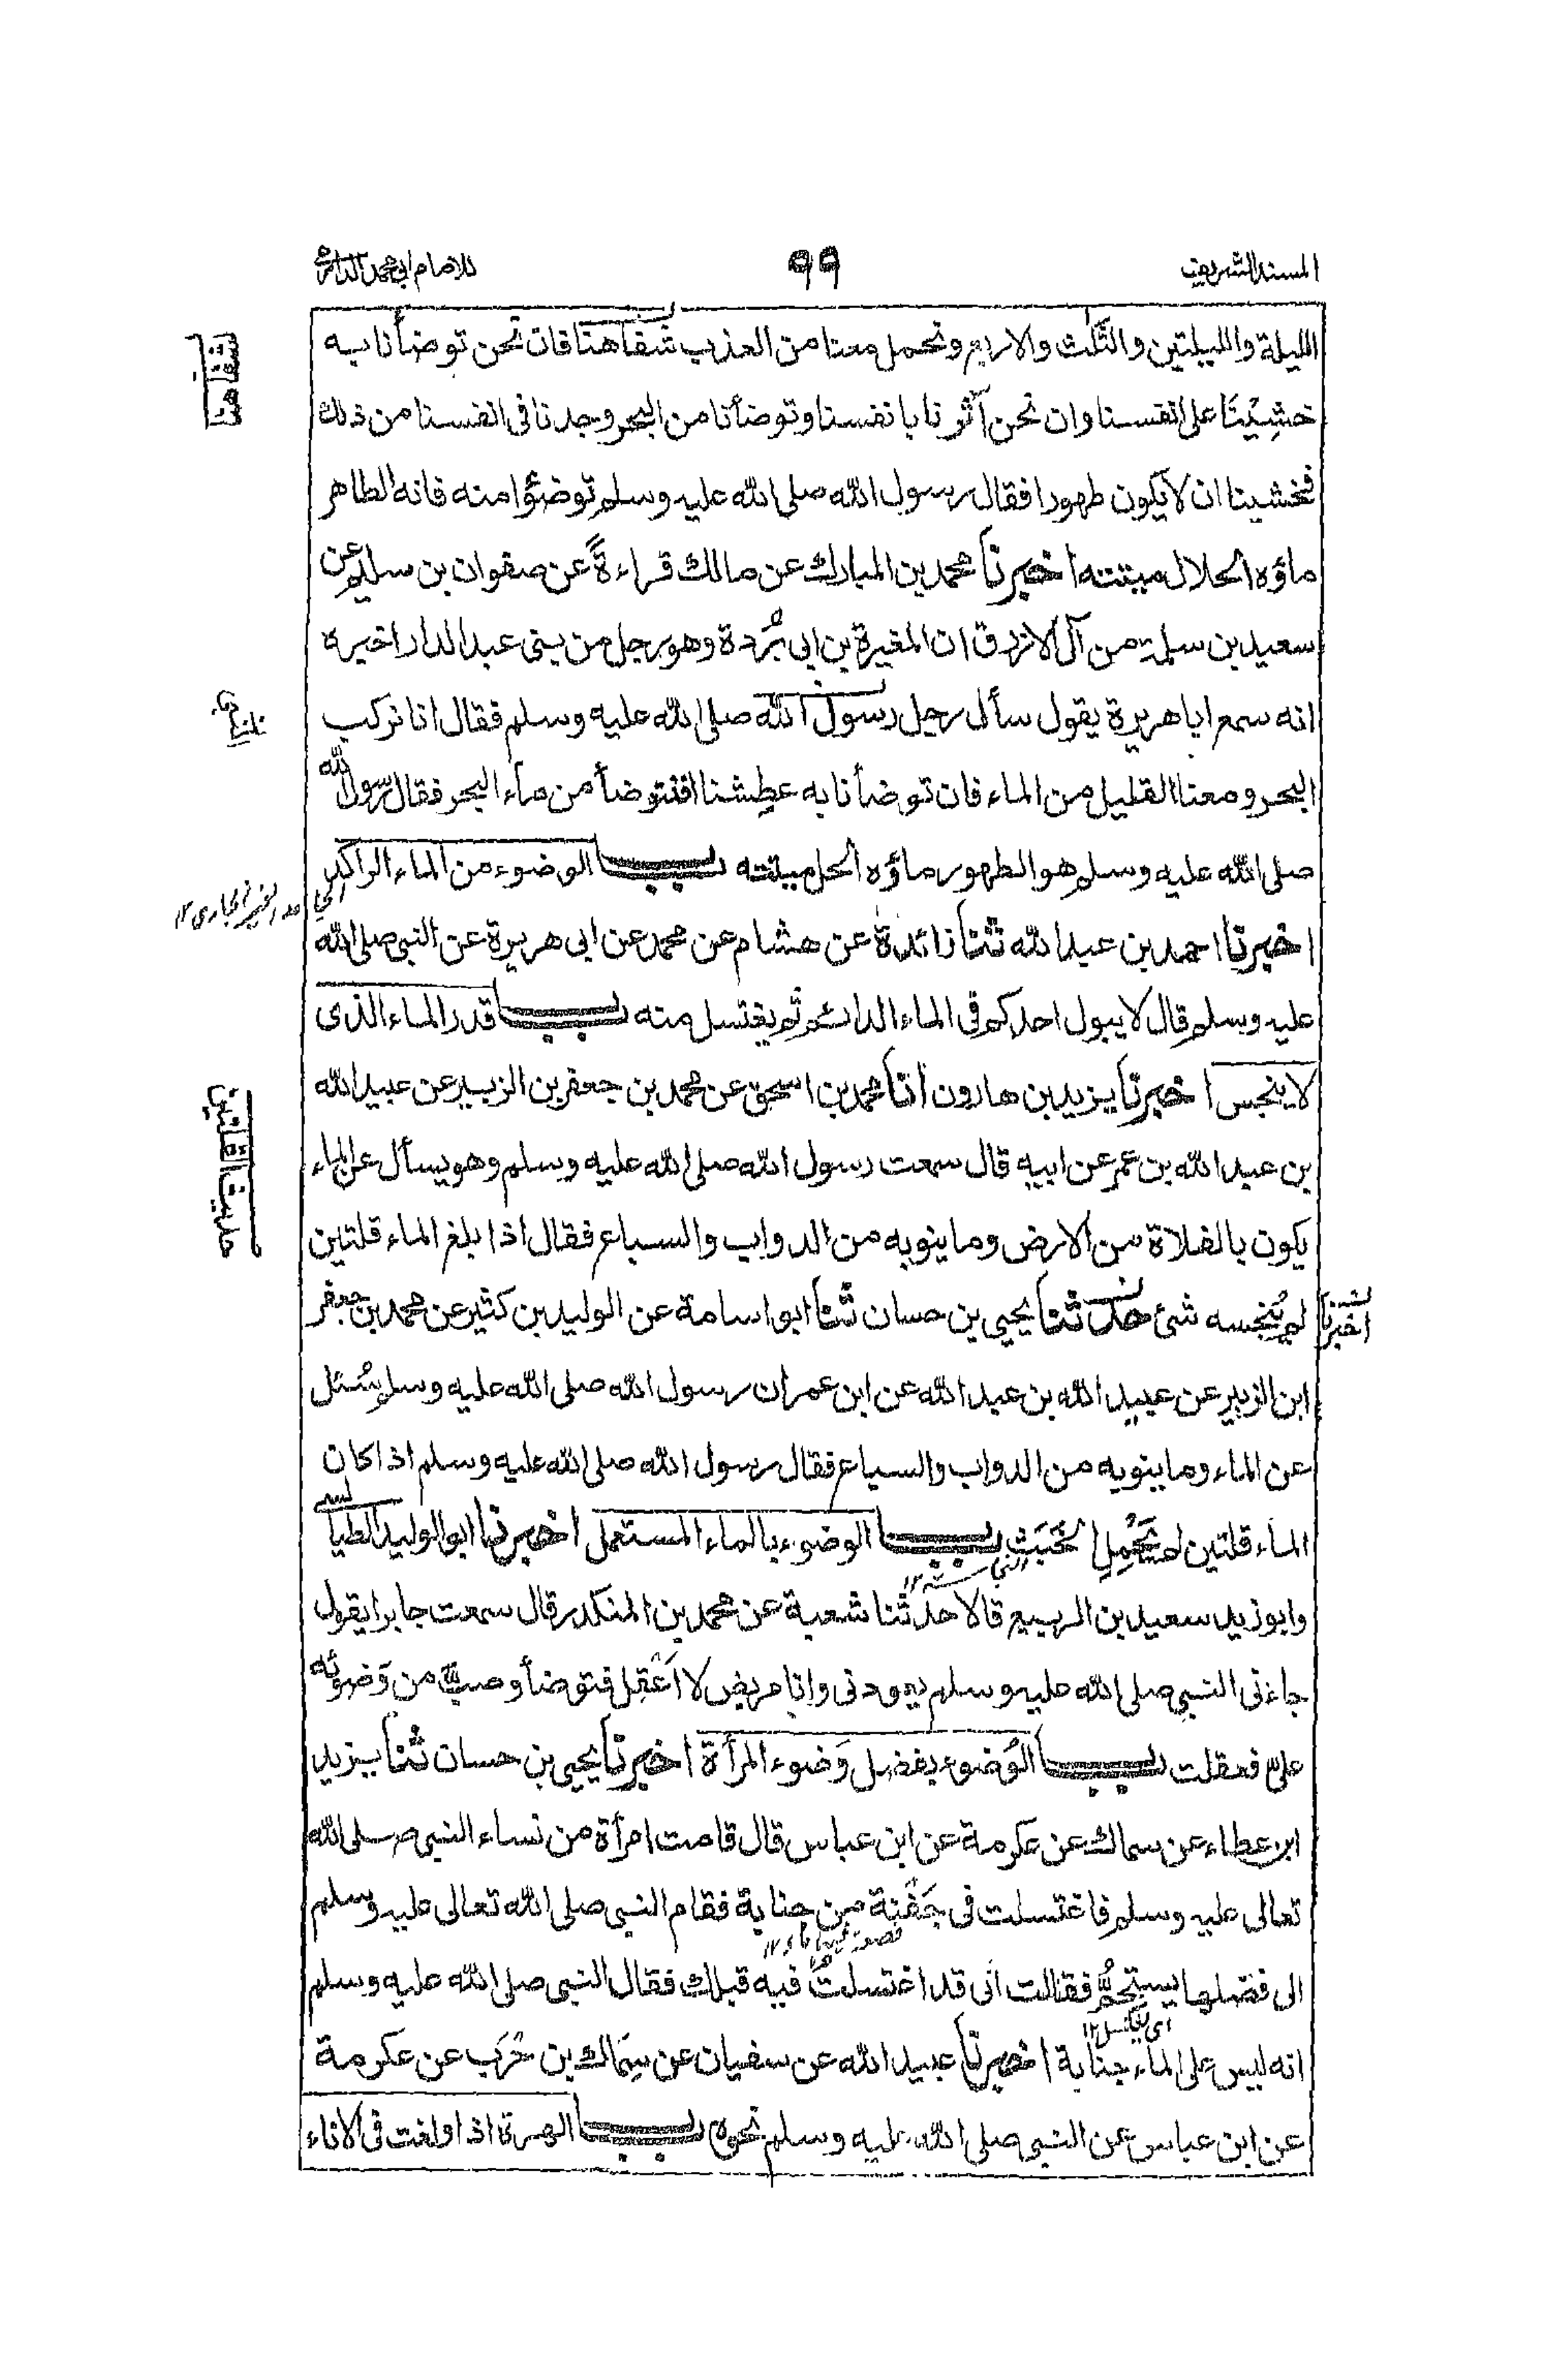 المسند الشريف
٩٩
للامام ابي محمد الدارمي
الليلة والليلتين والثَّلٰث والاربع ونحمل معنا من العذب شفاهنا فان نحن توضأنا به
شفاهنا
خشِيْنَا على انفسنا وان نحن آثرنا بانفسنا وتوضأنا من البحر وجدنا فى انفسنا من ذلك
فخشينا ان لا يكون طهورا فقال رسول الله صلى الله عليه وسلم توضؤا منه فانه الطاهر
ماؤه الحلال ميتته اخبرنا محمد بن المبارك عن مالك قراءةً عن صفوان بن سليم عن
سعيد بن سلمة من آل الازرق ان المغيرة بن ابى بُردة وهو رجل من بنى عبد الدار اخبره
انه سمع ابا هريرة يقول سأل رجل رسول الله صلى الله عليه وسلم فقال انا نركب
البحر ومعنا القليل من الماء فان توضأنا به عطِشنا افنتوضأ من ماء البحر فقال رسول الله
صلى الله عليه وسلم هو الطهور ماؤه الحل ميتته باب الوضوء من الماء الراكد
اى غير الجارى ١٢
اخبرنا احمد بن عبد الله ثنا زائدة عن هشام عن محمد عن ابى هريرة عن النبى صلى الله
عليه وسلم قال لا يبول احدكم فى الماء الدائم ثم يغتسل منه باب قدر الماء الذى
لا ينجس اخبرنا يزيد بن هارون انا محمد بن اسحق عن محمد بن جعفر بن الزبير عن عبيد الله
حديث القلتين
بن عبد الله بن عمر عن ابيه قال سمعت رسول الله صلى الله عليه وسلم وهو يسأل عن الماء
يكون بالفلاة من الارض وما ينوبه من الدواب والسباع فقال اذا بلغ الماء قلتين
لم يُنجسه شئ حدثنا يحيى بن حسان ثنا ابو اسامة عن الوليد بن كثير عن محمد بن جعفر
اخبرنا
ابن الزبير عن عبيد الله بن عبد الله عن ابن عمر ان رسول الله صلى الله عليه وسلم سُئل
عن الماء وما ينوبه من الدواب والسباع فقال رسول الله صلى الله عليه وسلم اذا كان
الماء قلتين لم يَحْمِلِ الخَبَثَ باب الوضوء بالماء المستعمل اخبرنا ابو الوليد الطيالسى
وابو زيد سعيد بن الربيع قالا حدثنا شعبة عن محمد بن المنكدر قال سمعت جابرا يقول
جاءنى النبى صلى الله عليه وسلم يعودنى وانا مريض لا اَعْقِل فتوضأ وصبَّ من وَضوئه
علىّ فعقلت باب الوُضوء بفضل وَضوء المرأة اخبرنا يحيى بن حسان ثنا يزيد
ابن عطاء عن سماك عن عكرمة عن ابن عباس قال قامت امرأة من نساء النبى صلى الله
تعالى عليه وسلم فاغتسلت فى جَفْنة من جنابة فقام النبى صلى الله تعالى عليه وسلم
الى فضلها يستحمُّ فقالت انى قد اغتسلتُ فيه قبلك فقال النبى صلى الله عليه وسلم
اى يغتسل ١٢
انه ليس على الماء جنابة اخبرنا عبيد الله عن سفيان عن سِمَاك بن حَرب عن عكرمة
عن ابن عباس عن النبى صلى الله عليه وسلم نحوه باب الهرة اذا ولغت فى الاناء